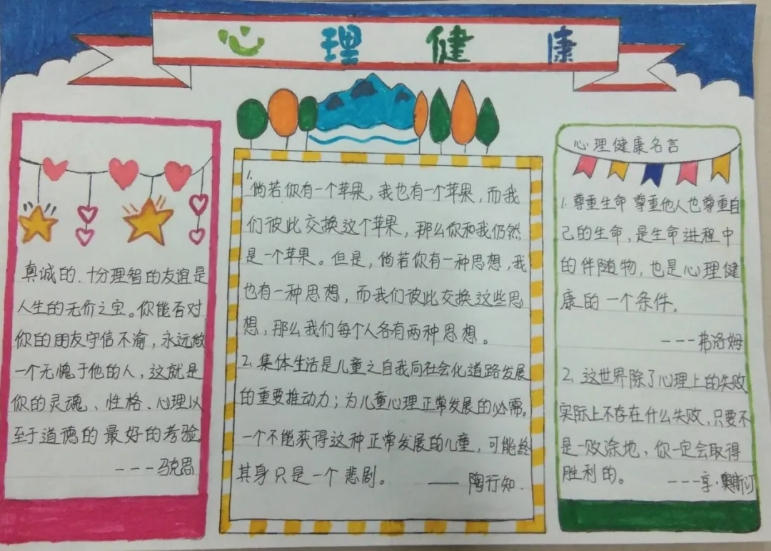 心理健康
真诚的、十分理智的友谊是
人生的无价之宝。你能否对
你的朋友守信不渝，永远做
一个无愧于他的人，这就是
你的灵魂、性格、心理以
至于道德的最好的考验
---马克思
1.
倘若你有一个苹果，我也有一个苹果，而我
们彼此交换这个苹果，那么你和我仍然
是一个苹果。但是，倘若你有一种思想，我
也有一种思想，而我们彼此交换这些思
想，那么我们每个人各有两种思想。
2.集体生活是儿童之自我向社会化道路发展
的重要推动力；为儿童心理正常发展的必需。
一个不能获得这种正常发展的儿童，可能终
其身只是一个悲剧。 ——陶行知.
心理健康名言
1.尊重生命 尊重他人也尊重自
己的生命，是生命进程中
的伴随物，也是心理健
康的一个条件。
---弗洛姆
2.这世界除了心理上的失败
实际上不存在什么失败，只要不
是一败涂地，你一定会取得
胜利的。 ---亨·奥斯汀